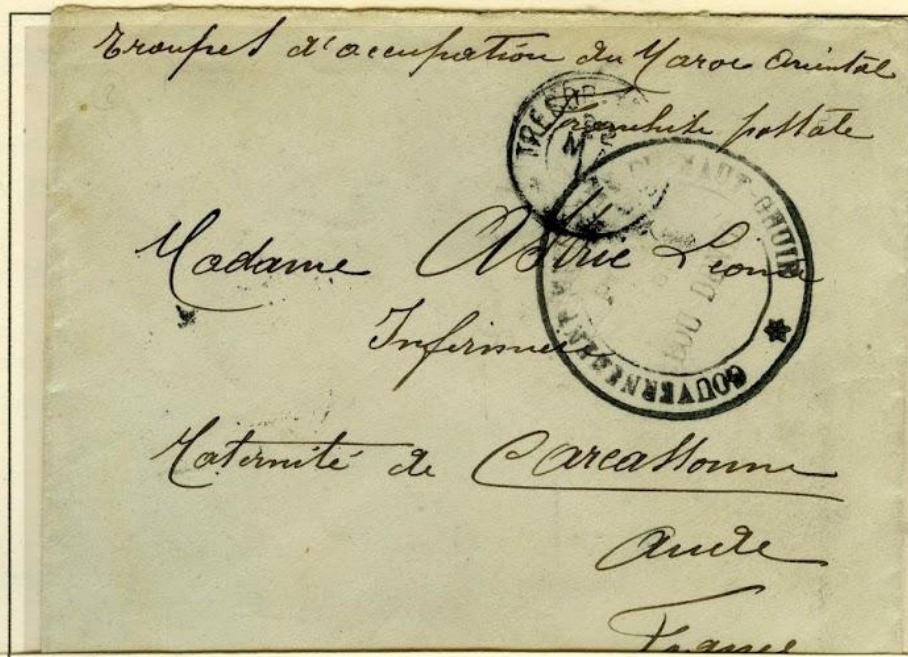 Troupes d'occupation du Maroc Oriental
Franchise postale
TRESOR
GOUVERNEMENT HAUT-GHUIR
BOU DE
Madame Astrie Léonie
Infirmière
Maternité de Carcassonne
Aude
France